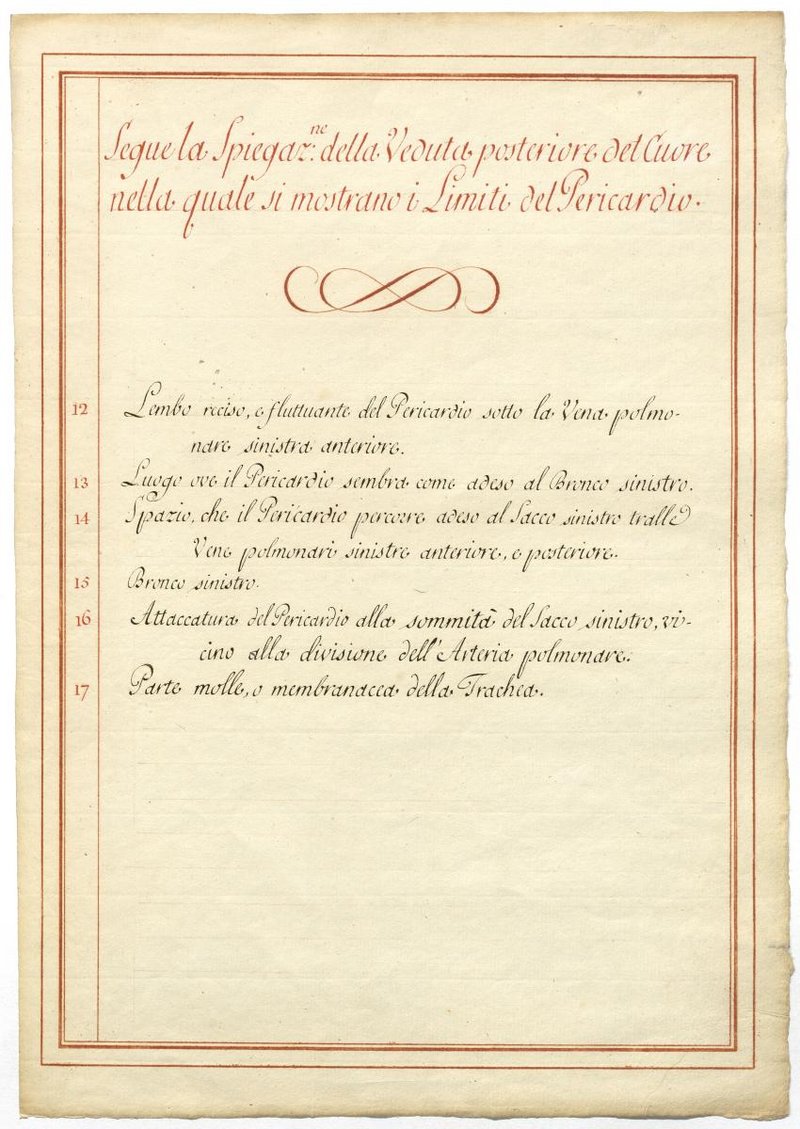 Segue la Spiegaz:ne della Veduta posteriore del Cuore
nella quale si mostrano i Limiti del Pericardio.
12 Lembo reciso, e fluttuante del Pericardio sotto la Vena polmo-
nare sinistra anteriore.
13 Luogo ove il Pericardio sembra come adeso al Bronco sinistro.
14 Spazio, che il Pericardio percorre adeso al Sacco sinistro tralle
Vene polmonari sinistre anteriore, e posteriore.
15 Bronco sinistro.
16 Attaccatura del Pericardio alla sommità del Sacco sinistro, vi-
cino alla divisione dell'Arteria polmonare.
17 Parte molle, o membranacea della Trachea.